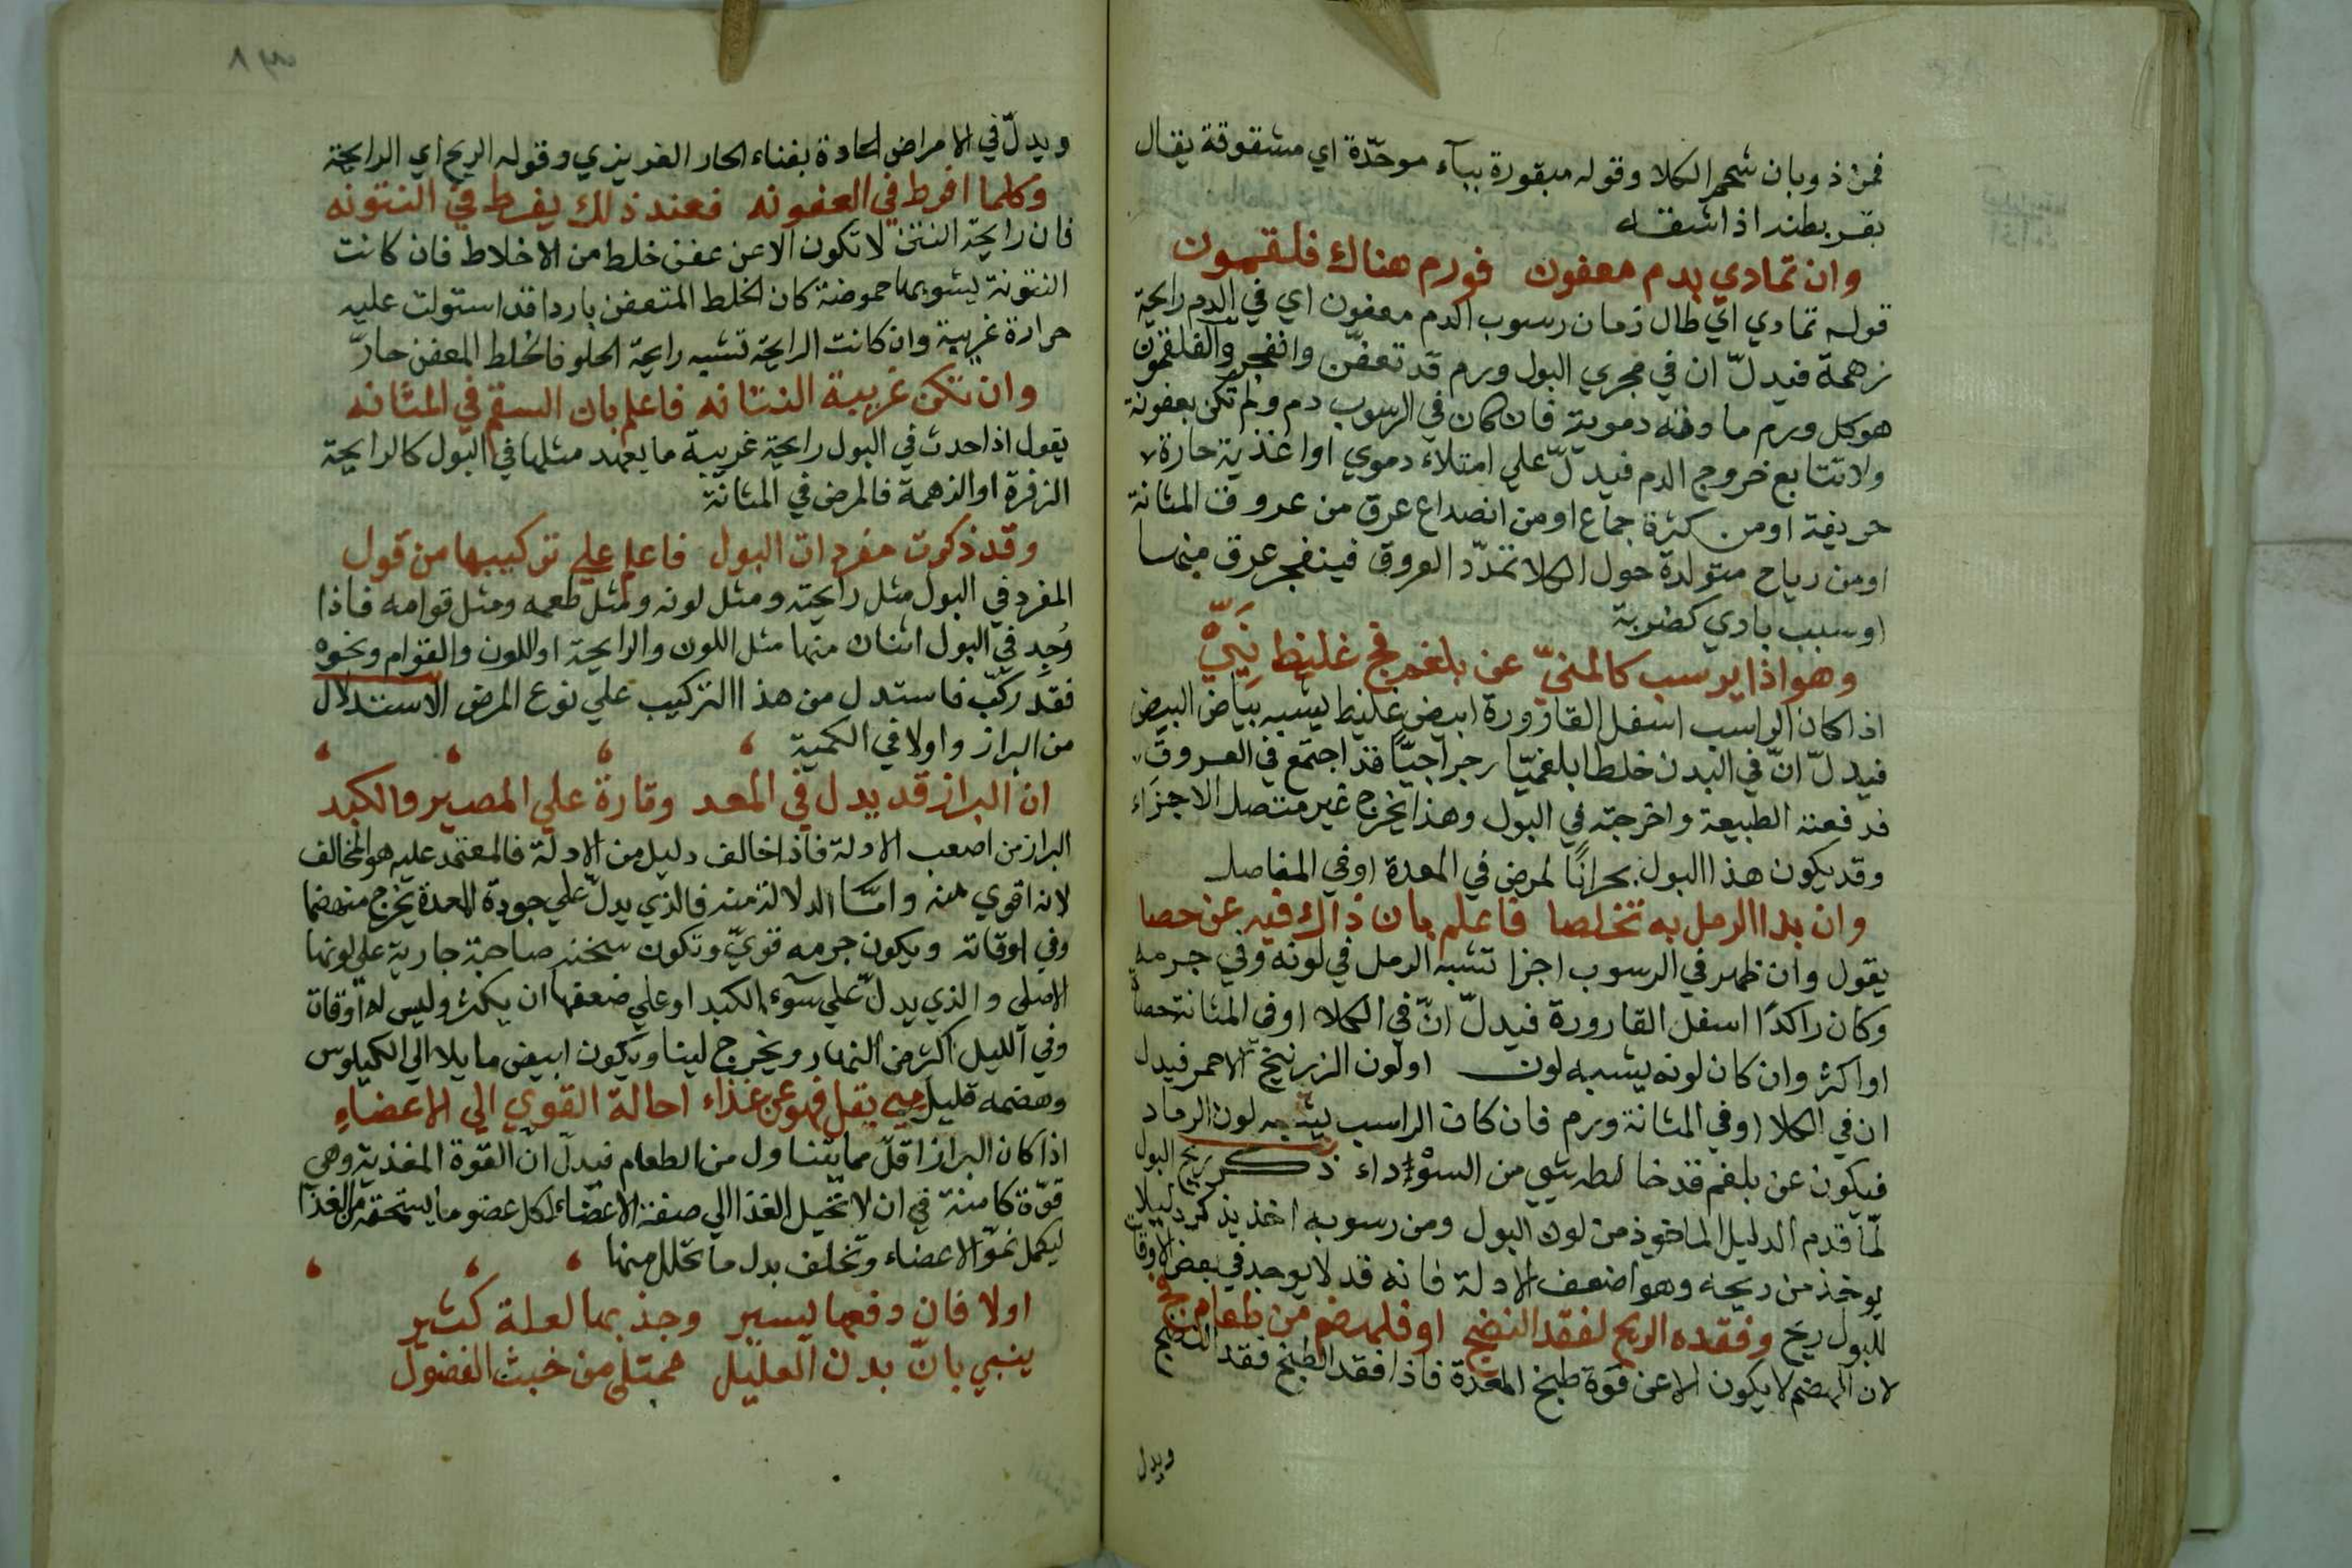 فمن ذوبان شحم الكلا وقوله مبقورة ببآء موحّدة اي مشقوقة يقال
بقر بطنه اذا شقه
وان تمادي بدم معفون فورم هناك فلقمون
قوله تمادي اي طال زمان رسوب الدم معفون اي في الدم رايحة
زهمة فيدلّ ان في مجري البول ورم قد تعفّن وانفجر والفلقمون
هو كل ورم مادته دموية فان كان في الرسوب دم ولم تكن بعفونة
ولا تتابع خروج الدم فيدلّ علي امتلاء دموي او اغذية حارة
حريفة او من كثرة جماع او من انصداع عرق من عروق المثانة
او من رياح متولدة حول الكلا تمدّد العروق فينفجر عرق منها
او سبب بادي كضربة
وهو اذا يرسب كالمنيّ عن بلغم فج غليظ نِيَيّ
اذا كان الراسب اسفل القارورة ابيض غليظ يشبه بياض البيض
فيدلّ انّ في البدن خلطا بلغميّا رجراجيّا قد اجتمع في العروق
فدفعته الطبيعة واخرجته في البول وهذا يخرج غير متصل الاجزاء
وقد يكون هذا البول بحرانًا لمرض في المعدة او في المفاصل
وان بدا الرمل به تخلصا فاعلم بان ذاك فيه عن حصا
يقول وان ظهر في الرسوب اجزا تشبه الرمل في لونه وفي جرمه
وكان راكدًا اسفل القارورة فيدلّ انّ في الكلا او في المثانة حصاة
او اكثر وان كان لونه يشبه لون او لون الزرنيخ الاحمر فيدل
ان في الكلا او في المثانة ورم فان كان الراسب يشبه لون الرماد
فيكون عن بلغم قد خالطه شيي من السوداء ذكر ريح البول
لمّا قدم الدليل الماخوذ من لون البول ومن رسوبه اخذ يذكر دليلا
يوخذ من ريحه وهو اضعف الادلة فانه قد لا يوجد في بعض الاوقات
للبول ريح وفقده الريح لفقد النضج او فلهضم من طعام فج
لان الهضم لا يكون الا عن قوة طبخ المعدة فاذا فقد الطبخ فقد النضج
ويدل
ويدلّ في الامراض الحادة بفناء الحار الغريزي وقوله الريح اي الرايحة
وكلما افرط في العفونه فعند ذلك يفرط في النتونه
فان رايحة النتن لا تكون الا عن عفن خلط من الاخلاط فان كانت
النتونة يشوبها حموضة كان الخلط المتعفن باردا قد استولت عليه
حرارة غريبة وان كانت الرايحة تشبه رايحة الحلو فالخلط المعفن حارّ
وان تكن غريبة النتانه فاعلم بان السقم في المثانه
يقول اذا حدث في البول رايحة غريبة ما يعهد مثلها في البول كالرايحة
الزفرة او الزهمة فالمرض في المثانة
وقد ذكرت مفردات البول فاعمل علي تركيبها من قول
المفرد في البول مثل رايحته ومثل لونه ومثل طعمه ومثل قوامه فاذا
وُجد في البول اثنان منها مثل اللون والرايحة او اللون والقوام ونحوه
فقد ركّب فاستدل من هذا التركيب علي نوع المرض الاستدلال
من البراز واولا في الكمية
ان البراز قد يدل في المعد وتارة علي المصير والكبد
البراز من اصعب الادلة فاذا خالف دليل من الادلة فالمعتمد عليه هو المخالف
لانه اقوي منه وامّا الدلالة منه فالذي يدلّ علي جودة المعدة يخرج منهضما
وفي اوقاته ويكون جرمه قويّ وتكون سخنه صاحبة جارية علي لونها
الاصلي والذي يدلّ علي سوء الكبد او علي ضعفها ان يكثر وليس له اوقات
وفي الليل اكثر من النهار ويخرج لينا ويكون ابيض مايلا الي الكيلوس
وهضمه قليل متي يقل فهو عن غذاء احالة القوي الي الاعضاءِ
اذا كان البراز اقلّ مما يتناول من الطعام فيدلّ انّ القوة المغذية وهي
قوّة كامنة في ان لا تحيل الغذا الي صفة الاعضاء لكل عضو ما يستحقه من الغذا
ليكمل نموّ الاعضاء وتخلف بدل ما تحلل منها
اولا فان دفعها يسير وجذبها لعلة كثير
ينبي بانّ بدن العليل ممتلي من خبث الفضول